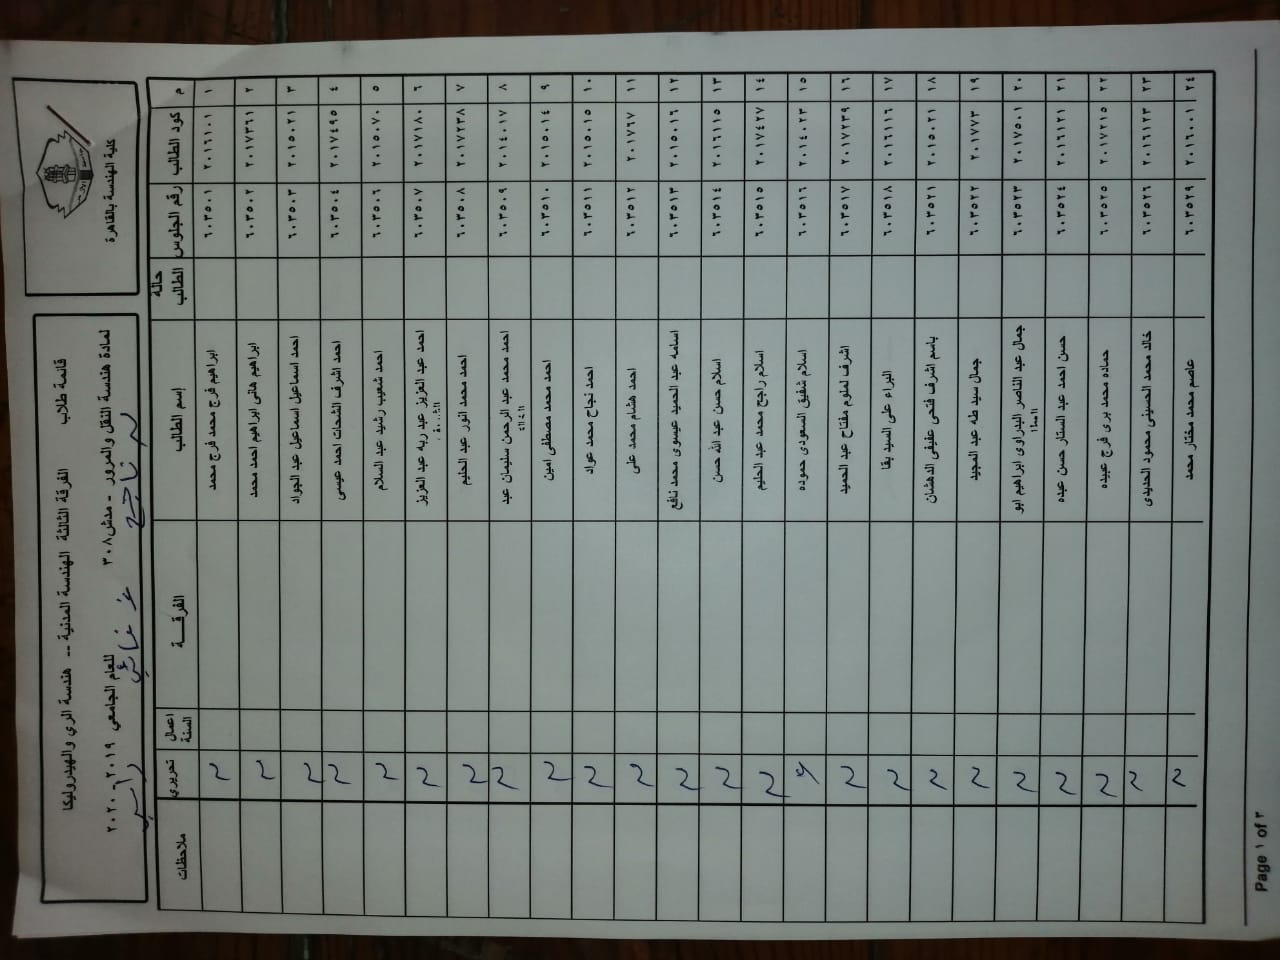 كلية الهندسة بالقاهرة
قائمة طلاب الفرقة الثالثة الهندسة المدنية -- هندسة الري والهيدروليكا
لمادة هندسة النقل والمرور - مدش٣٠٨ للعام الجامعي ٢٠١٩ - ٢٠٢٠
م كود الطالب رقم الجلوس حالة الطالب إسم الطالب الفرقـــة اعمال السنة تحريري ملاحظات
١ ٢٠١٦١٠١ ٦٠٣٥٠١ ابراهيم فرج محمد فرج محمد
٢ ٢٠١٧٣٦١ ٦٠٣٥٠٢ ابراهيم هانى ابراهيم احمد محمد
٣ ٢٠١٥٠٢١ ٦٠٣٥٠٣ احمد اسماعيل اسماعيل عبد الجواد
٤ ٢٠١٧٤٩٥ ٦٠٣٥٠٤ احمد اشرف الشحات احمد عيسى
٥ ٢٠١٥٠٧٠ ٦٠٣٥٠٦ احمد شعيب رشيد عبد السلام
٦ ٢٠١٧١٨٠ ٦٠٣٥٠٧ احمد عبد العزيز عبد ربه عبد العزيز
٧ ٢٠١٧٢٣٨ ٦٠٣٥٠٨ احمد محمد انور عبد الحليم
٨ ٢٠١٤٠١٧ ٦٠٣٥٠٩ احمد محمد عبد الرحمن سليمان عبد
٩ ٢٠١٥٠١٤ ٦٠٣٥١٠ احمد محمد مصطفى امين
١٠ ٢٠١٥٠١٥ ٦٠٣٥١١ احمد نجاح محمد عواد
١١ ٢٠١٧٦٧ ٦٠٣٥١٢ احمد هشام محمد على
١٢ ٢٠١٥٠١٦ ٦٠٣٥١٣ اسامه عبد الحميد عيسوى محمد نافع
١٣ ٢٠١٦١١٥ ٦٠٣٥١٤ اسلام حسن عبد الله حسن
١٤ ٢٠١٧٤٢٧ ٦٠٣٥١٥ اسلام راجح محمد عبد الحليم
١٥ ٢٠١٤٠٢٣ ٦٠٣٥١٦ اسلام شفيق السعودى حموده
١٦ ٢٠١٧٢٣٩ ٦٠٣٥١٧ اشرف لملوم مفتاح عبد الحميد
١٧ ٢٠١٦١١٦ ٦٠٣٥١٨ البراء على السيد بقا
١٨ ٢٠١٥٠٢١ ٦٠٣٥٢١ باسم اشرف فتحى عفيفى الدهشان
١٩ ٢٠١٧٧٣ ٦٠٣٥٢٢ جمال سيد طه عبد المجيد
٢٠ ٢٠١٧٥٠١ ٦٠٣٥٢٣ جمال عبد الناصر البدراوى ابراهيم ابو
٢١ ٢٠١٦١٢١ ٦٠٣٥٢٤ حسن احمد عبد الستار حسن عبده
٢٢ ٢٠١٧٢١٥ ٦٠٣٥٢٥ حماده محمد برى فرج عبيده
٢٣ ٢٠١٦١٢٣ ٦٠٣٥٢٦ خالد محمد الحسينى محمود الحديدى
٢٤ ٢٠١٦٠٠١ ٦٠٣٥٢٩ عاصم محمد مختار محمد
Page ١ of ٣